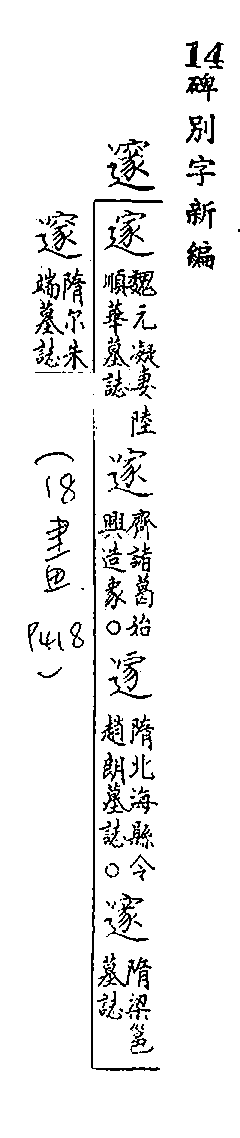 14碑別字新編
邃
邃魏元凝妻陸順華墓誌邃齊諸葛始興造象○邃隋北海縣令趙朗墓誌○邃隋梁邕墓誌
邃隋尔朱端墓誌
(18畫
P418)